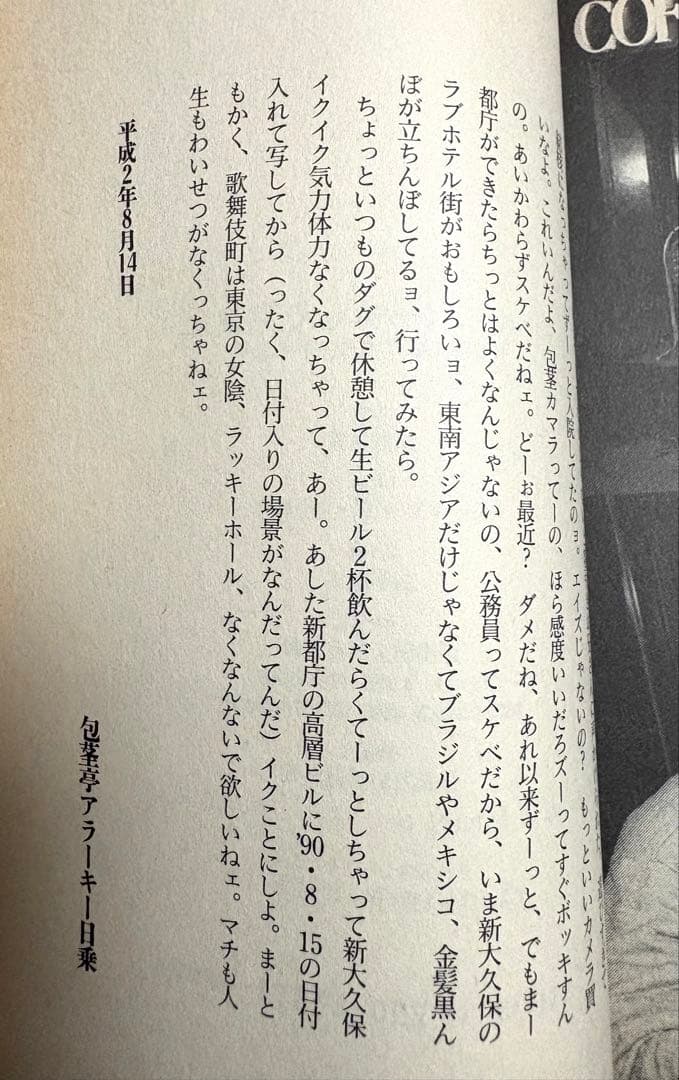 COF
っちゃってずーっと入院してたのョ。エイズじゃないの？　もっといいカメラ買
いなよ。これいんだよ、包茎カマラってーの、ほら感度いいだろズーってすぐボッキすん
の。あいかわらずスケベだねェ。どーぉ最近？　ダメだね、あれ以来ずーっと、でもまー
都庁ができたらちっとはよくなんじゃないの、公務員ってスケベだから、いま新大久保の
ラブホテル街がおもしろいョ、東南アジアだけじゃなくてブラジルやメキシコ、金髪黒ん
ぼが立ちんぼしてるョ、行ってみたら。
ちょっといつものダグで休憩して生ビール２杯飲んだらくてーっとしちゃって新大久保
イクイク気力体力なくなっちゃって、あー。あした新都庁の高層ビルに’90・8・15の日付
入れて写してから（ったく、日付入りの場景がなんだってんだ）イクことにしよ。まーと
もかく、歌舞伎町は東京の女陰、ラッキーホール、なくなんないで欲しいねェ。マチも人
生もわいせつがなくっちゃねェ。
平成２年８月14日
包茎亭アラーキー日乗